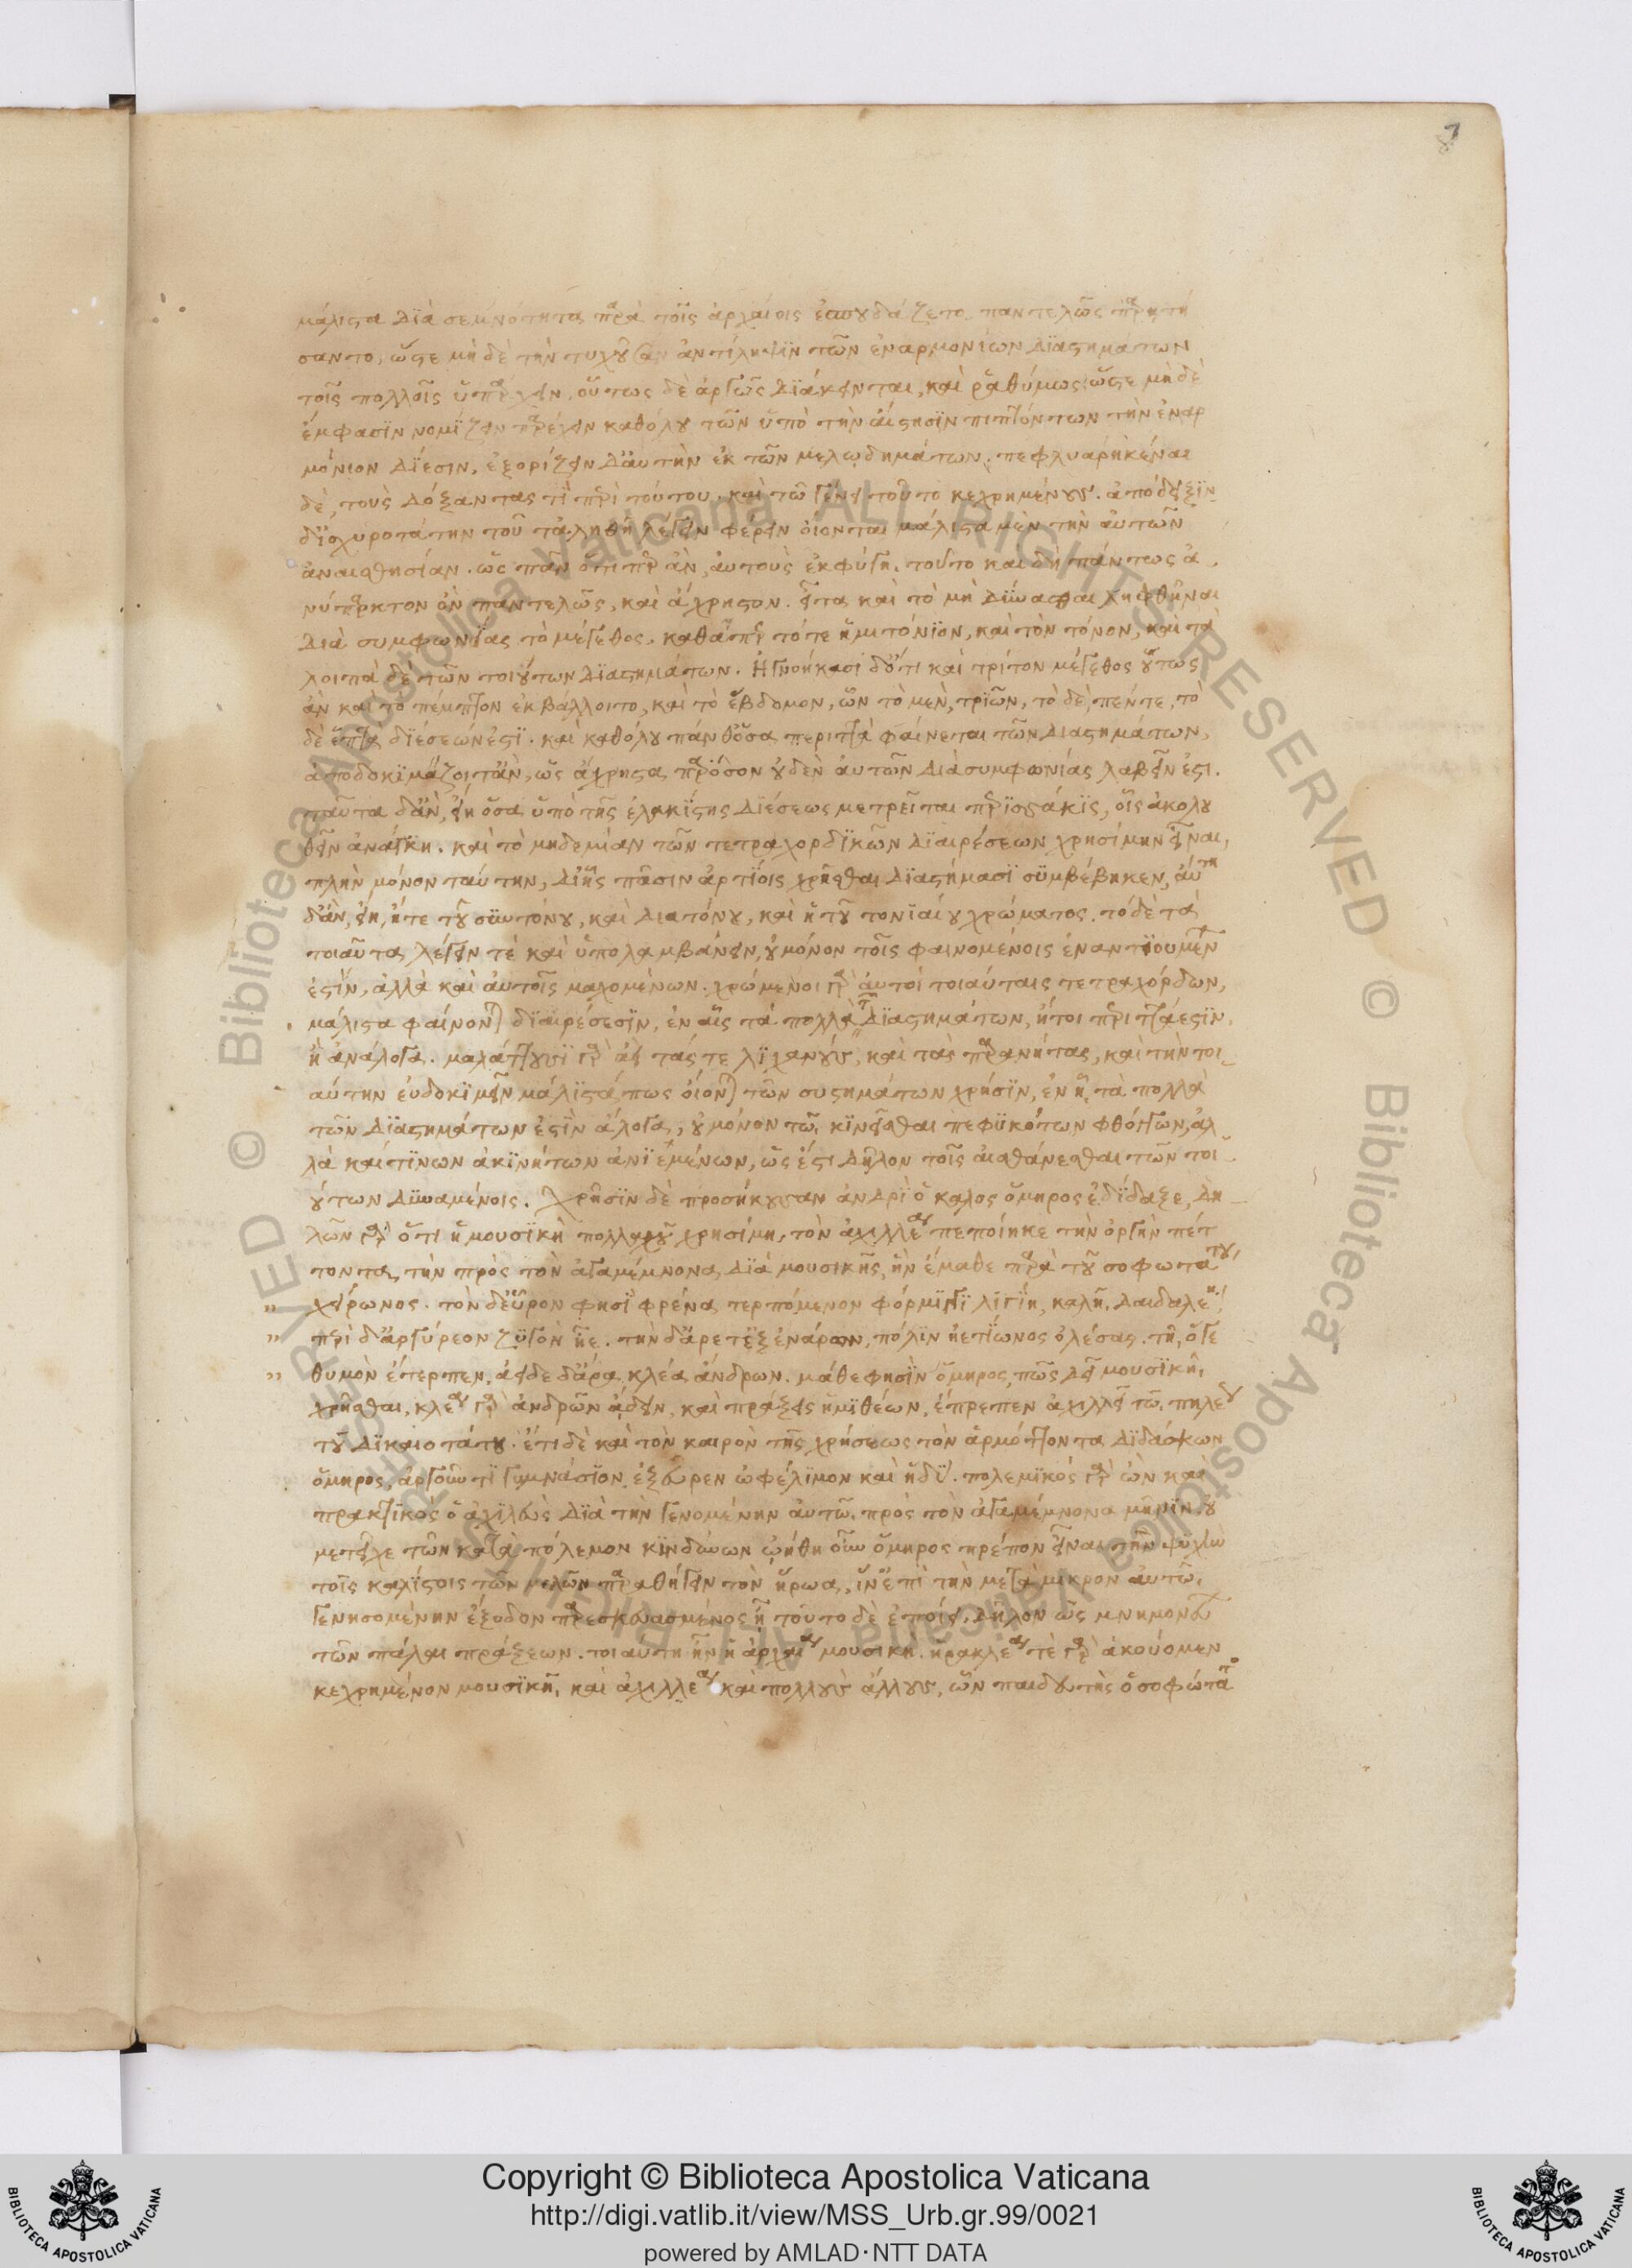 7
μάλιστα διὰ σεμνότητα παρὰ τοῖς ἀρχαίοις ἐσπουδάζετο, παντελῶς παρῃτή
σαντο, ὥστε μὴ δὲ τὴν τυχοῦσαν ἀντίληψϊν τῶν ἐναρμονίων διαστημάτων
τοῖς πολλοῖς ὑπάρχειν, οὕτως δὲ ἀργῶς διάκεινται, καὶ ῥαθύμως, ὥστε μὴ δὲ
ἔμφασϊν νομίζειν παρέχειν καθόλου τῶν ὑπὸ τὴν αἴσθησϊν πιπτόντων τὴν ἐναρ
μόνιον δίεσιν, ἐξορίζειν δ' αὐτὴν ἐκ τῶν μελῳδημάτων. πεφλυαρηκέναι
δὲ, τοὺς δόξαντας τὶ περὶ τούτου. καὶ τῶ γένει τούτο κεχρημένους. ἀπόδειξϊν
δ' ἰσχυροτάτην τοῦ τἀληθῆ λέγειν φέρειν οἴονται μάλιστα μὲν τὴν αὐτῶν
ἀναισθησίαν. ὡς πᾶν ὅτι περ ἂν, αὐτοὺς ἐκφύγῃ, τοῦτο καὶ δὴ πάντως ἀ
νύπαρκτον ὂν παντελῶς, καὶ ἄχρηστον. εἶτα καὶ τὸ μὴ δύνασθαι ληφθῆναι
διὰ συμφωνίας τὸ μέγεθος, καθάπερ τότε ἡμιτόνϊον, καὶ τὸν τόνον, καὶ τὰ
λοιπὰ δὲ τῶν τοιούτων διαστημάτων. Ηγνοήκασι δ' ὅτι καὶ τρίτον μέγεθος οὕτως
ἂν καὶ τὸ πέμπτον ἐκβάλλοιτο, καὶ τὸ ἕβδομον, ὧν τὸ μὲν, τριῶν, τὸ δὲ, πέντε, τὸ
δὲ ἑπτὰ διέσεων ἐστϊ. καὶ καθόλου πάνθ' ὅσα περιττὰ φαίνεται τῶν διαστημάτων,
ἀποδοκιμάζοιτ' ἂν, ὡς ἄχρηστα, παρόσον οὐδὲν αὐτῶν διὰ συμφωνίας λαβεῖν ἐστι.
ταῦτα δ' ἂν, εἴη ὅσα ὑπὸ τῆς ἐλακίστης διέσεως μετρεῖται περισσάκις, οἷς ἀκολου
θεῖν ἀνάγκη. καὶ τὸ μηδεμίαν τῶν τετραχορδικῶν διαιρέσεων χρησίμην εἶναι,
πλὴν μόνον ταύτην, δι' ἧς πᾶσιν ἀρτίοις χρῆσθαι διαστήμασϊ συμβέβηκεν, αὕτη
δ' ἂν, εἴη, ἥτε τοῦ συντόνου, καὶ διατόνου, καὶ ἡ τοῦ τονϊαίου χρώματος. τὸ δὲ τὰ
τοιαῦτα λέγειν τὲ καὶ ὑπολαμβάνειν, οὐ μόνον τοῖς φαινομένοις ἐναντϊουμένων
ἐστὶν, ἀλλὰ καὶ αὐτοῖς μαχομένων. χρώμενοι γὰρ αὐτοὶ τοιαύταις τετραχόρδων,
μάλιστα φαίνονται διαιρέσεσϊν, ἐν αἷς τὰ πολλὰ τῶν διαστημάτων, ἤτοι περιττά ἐστϊν,
ἢ ἀνάλογα. μαλάττουσϊ γὰρ ἀεὶ τάς τε λϊχανοὺς, καὶ τὰς παρανήτας, καὶ τὴν τοι
αύτην εὐδοκϊμεῖν μάλιστά πως οἴονται τῶν συστημάτων χρῆσϊν, ἐν ἧ, τὰ πολλὰ
τῶν διαστημάτων ἐστὶν ἄλογα, οὐ μόνον τῶ, κϊνεῖσθαι πεφυκότων φθόγγων, ἀλ
λὰ καὶ τϊνων ἀκινήτων ἀνϊεμένων, ὡς ἔστι δῆλον τοῖς αἰσθάνεσθαι τῶν τοι
ούτων δυναμένοις. Χρῆσϊν δὲ προσήκουσαν ἀνδρὶ ὁ καλος ὅμηρος ἐδίδαξε, δη
λῶν γὰρ ὅτι ἡ μουσϊκὴ πολλαχοῦ χρησίμη, τὸν ἀχιλλέα πεποίηκε τὴν ὀργὴν πέτ
τοντα, τὴν πρὸς τὸν ἀγαμέμνονα, διὰ μουσικῆς, ἣν ἔμαθε παρὰ τοῦ σοφωτάτου,
" χείρωνος. τὸν δ' εὗρον φησϊ φρένα τερπόμενον φόρμϊγγϊ λϊγείη, καλῆ, δαιδαλέη,
" περὶ δ' ἀργύρεον ζϋγὸν ἦε. τὴν δ' ἄρετ' ἐξ ἐνάρων, πόλϊν ἠετίωνος ὀλέσας. τῆ, ὅγε
" θυμὸν ἔτερπεν, ἄειδε δ' ἄρα κλέα ἄνδρων. μάθε φησϊν ὅμηρος, πῶς δεῖ μουσϊκῆ,
χρῆσθαι, κλέα γὰρ ἀνδρῶν ἄδειν, καὶ πράξεις ἡμϊθέων, ἔπρεπεν ἀχιλλεῖ τῶ, πηλέου
τοῦ δϊκαιοτάτου. ἔτι δὲ καὶ τὸν καιρὸν τῆς χρήσεως τὸν ἁρμόττοντα διδάσκων
ὅμηρος, ἀργοῦντϊ γυμνάσϊον ἐξεῦρεν ὠφέλϊμον καὶ ἡδύ. πολεμϊκός γὰρ ὢν καὶ
πρακτϊκὸς ὁ ἀχϊλεὺς διὰ τὴν γενομένην αὐτῶ, πρὸς τὸν ἀγαμέμνονα μῆνϊν, οὐ
μετεῖχε τῶν κατὰ πόλεμον κϊνδύνων ᾠήθη οὖν ὅμηρος πρέπον εἶναι τὴν ψυχὴν
τοῖς καλϊστοις τῶν μελῶν παραθήγειν τὸν ἥρωα, ἵν' ἐπὶ τὴν μετὰ μικρὸν αὐτῶ,
γενησομένην ἔξοδον παρεσκευασμένος ἦ τοῦτο δὲ ἐποίει, δῆλον ὡς μνημονεύων
τῶν πάλαι πράξεων. τοιαύτη ἦν ἡ ἀρχαία μουσικὴ. ἡρακλέα τὲ γὰρ ἀκούομεν
κεχρημένον μουσϊκῆ, καὶ ἀχιλλέα καὶ πολλοὺς ἄλλους, ὧν παιδευτὴς ὁ σοφώτατος
Copyright © Biblioteca Apostolica Vaticana
http://digi.vatlib.it/view/MSS_Urb.gr.99/0021
powered by AMLAD·NTT DATA
BIBLIOTECA APOSTOLICA VATICANA
BIBLIOTECA APOSTOLICA VATICANA